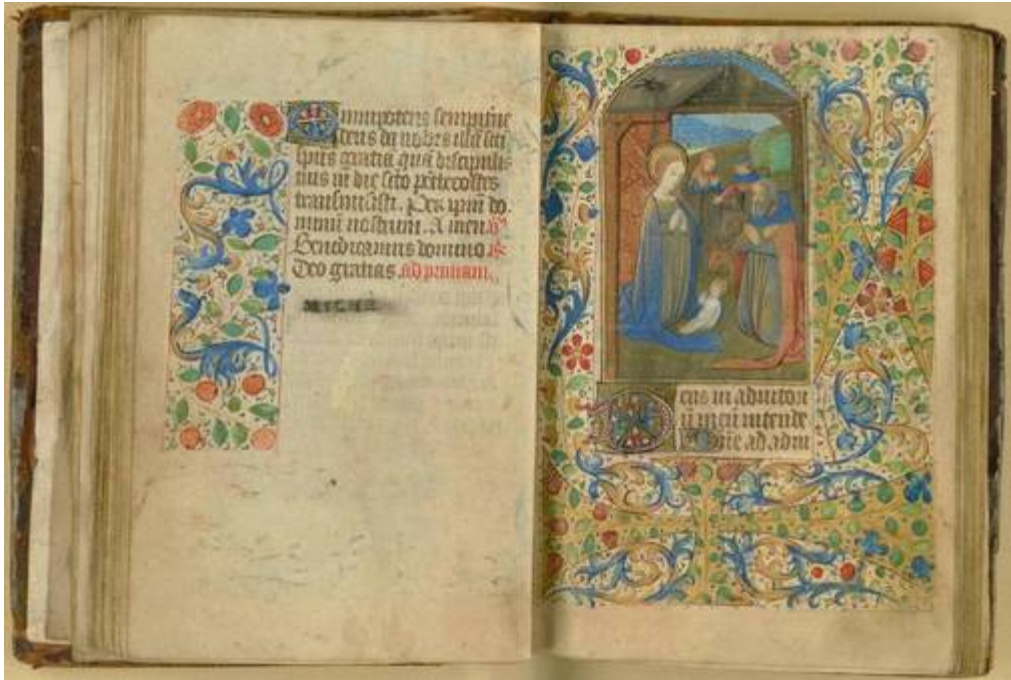 Omnipotens sempit̄ne
deus da nobis illā sc̄ti
sp̄us gratiā quā discipulis
tuis in die sc̄to p̄thecostes
transmisisti. Per xp̄m do
minū nostrum. Amen. 
Benedicamus domino
Deo gratias ad primam.
Deus in adiutori
ū meū intende
Dn̄e ad adiu